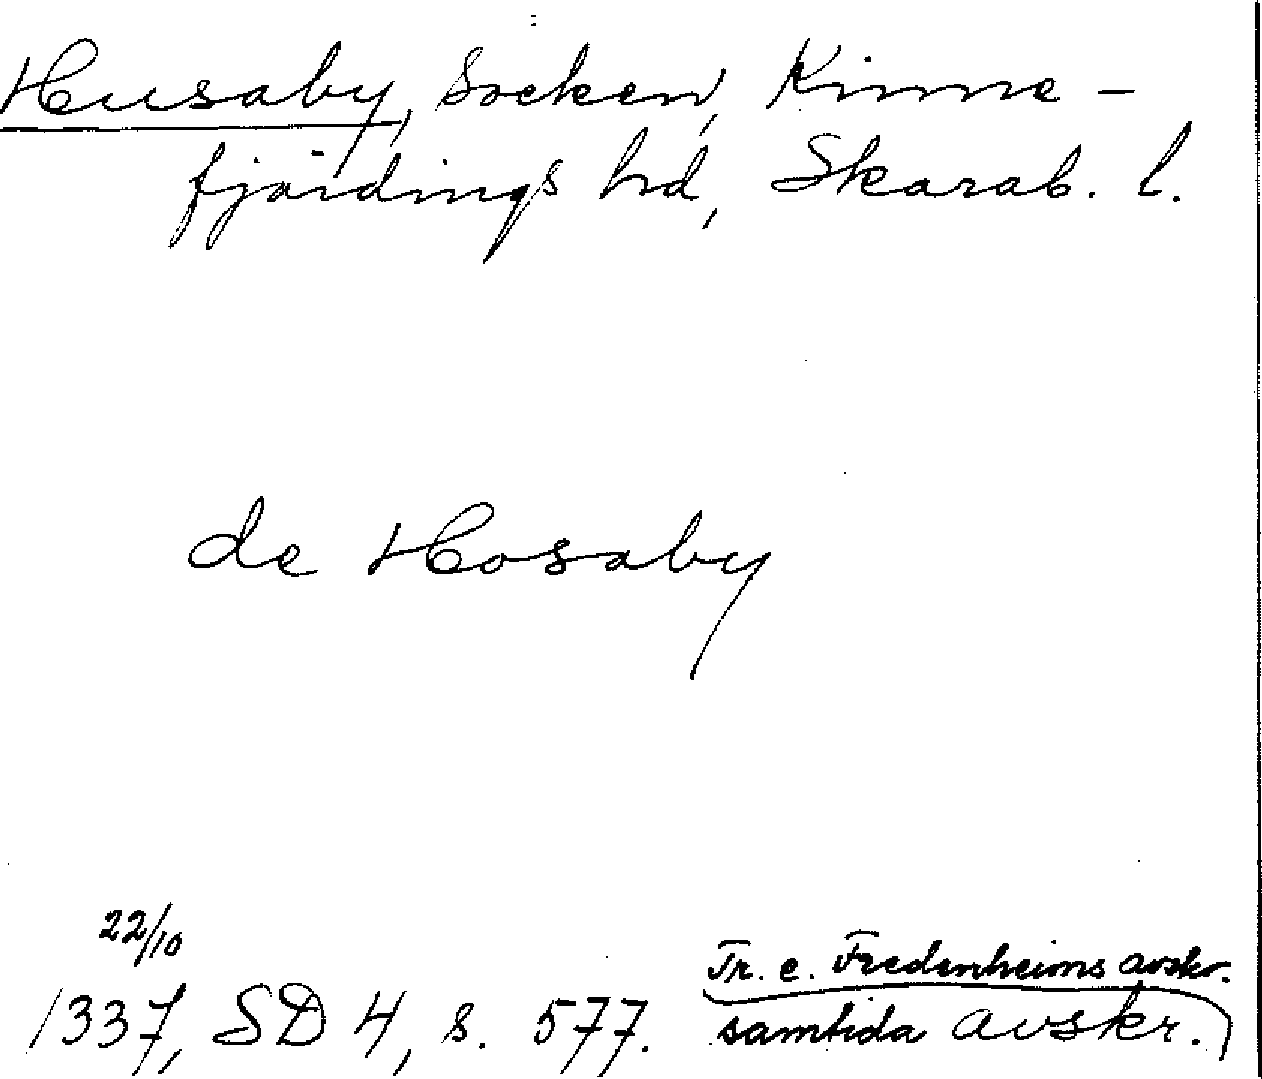 Husaby, Socken, Kinne-
fjärdings hd, Skarab. l.
de Hosaby
22/10
1337, SD 4, s. 577.
Tr. e. Fredenheims avskr.
samtida avskr.